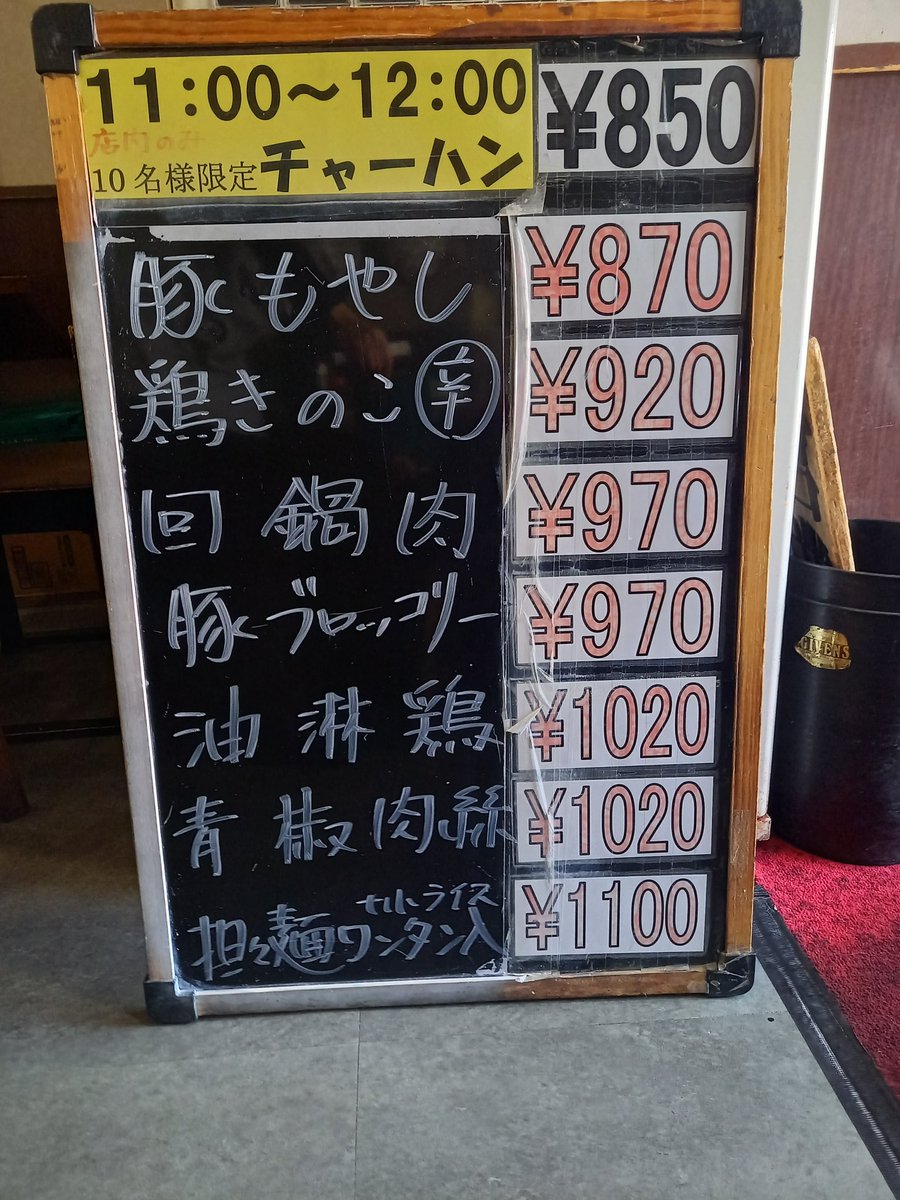 11:00～12:00 ¥850
店内のみ
10名様限定チャーハン
豚もやし ¥870
鶏きのこ辛 ¥920
回鍋肉 ¥970
豚ブロッコリー ¥970
油淋鶏 ¥1020
青椒肉絲 ¥1020
ライス
担々麺ワンタン入 ¥1100
GIVENS